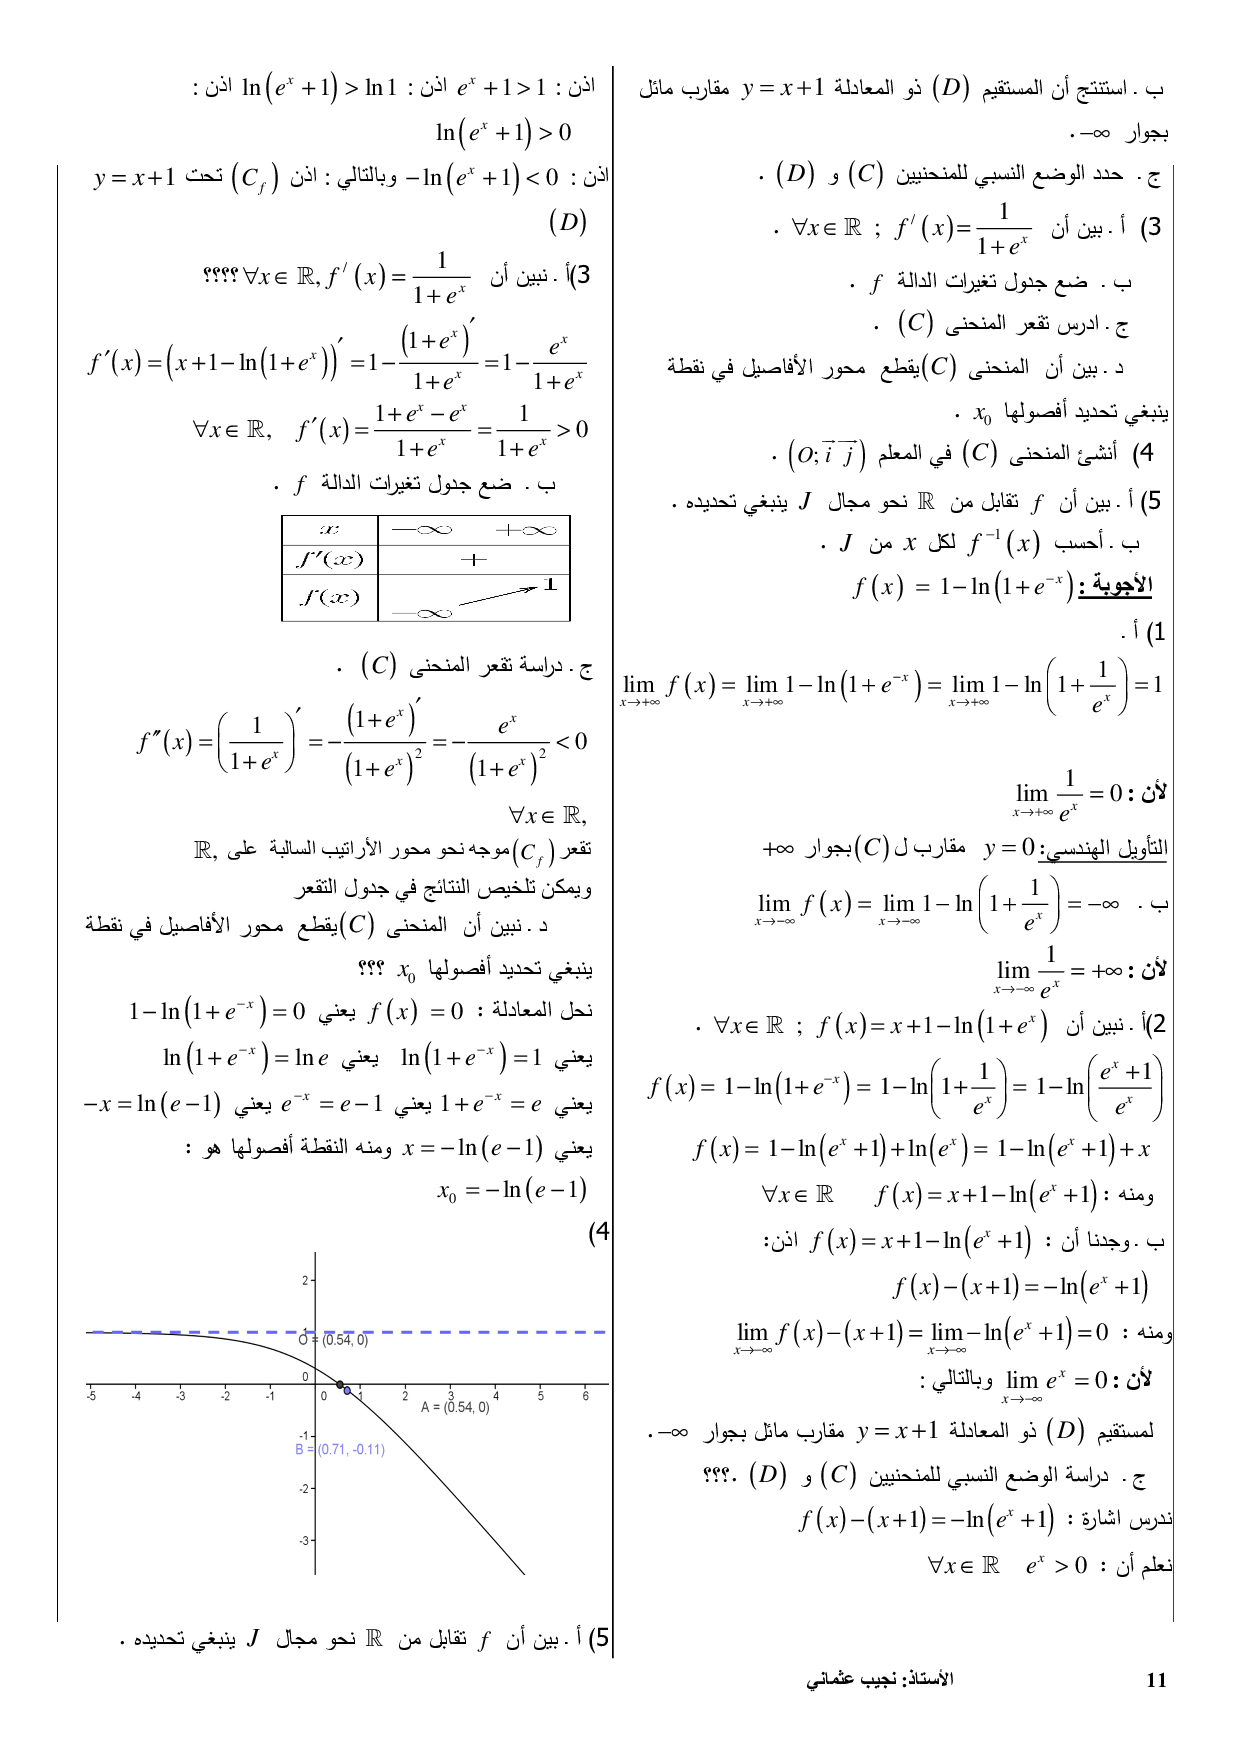 ب . استنتج أن المستقيم (D) ذو المعادلة y = x+1 مقارب مائل
بجوار −∞ .
ج . حدد الوضع النسبي للمنحنيين (C) و (D) .
3) أ . بين أن ∀x∈ℝ ; f′(x) = 1/(1+e^x) .
ب . ضع جدول تغيرات الدالة f .
ج . ادرس تقعر المنحنى (C) .
د . بين أن المنحنى (C) يقطع محور الأفاصيل في نقطة
ينبغي تحديد أفصولها x₀ .
4) أنشئ المنحنى (C) في المعلم (O; i⃗ j⃗) .
5) أ . بين أن f تقابل من ℝ نحو مجال J ينبغي تحديده .
ب . أحسب f⁻¹(x) لكل x من J .
الأجوبة : f(x) = 1−ln(1+e^{−x})
1) أ .
lim_{x→+∞} f(x) = lim_{x→+∞} 1−ln(1+e^{−x}) = lim_{x→+∞} 1−ln(1+1/e^x) = 1
لأن : lim_{x→+∞} 1/e^x = 0
التأويل الهندسي: y = 0 مقارب ل (C) بجوار +∞
ب . lim_{x→−∞} f(x) = lim_{x→−∞} 1−ln(1+1/e^x) = −∞
لأن : lim_{x→−∞} 1/e^x = +∞
2) أ . نبين أن ∀x∈ℝ ; f(x) = x+1−ln(1+e^x) .
f(x) = 1−ln(1+e^{−x}) = 1−ln(1+1/e^x) = 1−ln((e^x+1)/e^x)
f(x) = 1−ln(e^x+1)+ln(e^x) = 1−ln(e^x+1)+x
ومنه : f(x) = x+1−ln(e^x+1) ∀x∈ℝ
ب . وجدنا أن : f(x) = x+1−ln(e^x+1) اذن:
f(x)−(x+1) = −ln(e^x+1)
ومنه : lim_{x→−∞} f(x)−(x+1) = lim_{x→−∞} −ln(e^x+1) = 0
لأن : lim_{x→−∞} e^x = 0 وبالتالي :
لمستقيم (D) ذو المعادلة y = x+1 مقارب مائل بجوار −∞ .
ج . دراسة الوضع النسبي للمنحنيين (C) و (D) .؟؟؟
ندرس اشارة : f(x)−(x+1) = −ln(e^x+1)
نعلم أن : e^x > 0 ∀x∈ℝ
اذن : e^x+1 > 1 اذن : ln(e^x+1) > ln1 اذن :
ln(e^x+1) > 0
اذن : −ln(e^x+1) < 0 وبالتالي : اذن (C_f) تحت y = x+1
(D)
3) أ . نبين أن ∀x∈ℝ, f′(x) = 1/(1+e^x) ؟؟؟؟
f′(x) = (x+1−ln(1+e^x))′ = 1−(1+e^x)′/(1+e^x) = 1−e^x/(1+e^x)
∀x∈ℝ, f′(x) = (1+e^x−e^x)/(1+e^x) = 1/(1+e^x) > 0
ب . ضع جدول تغيرات الدالة f .
x −∞ +∞
f′(x) +
f(x) −∞ 1
ج . دراسة تقعر المنحنى (C) .
f″(x) = (1/(1+e^x))′ = −(1+e^x)′/(1+e^x)² = −e^x/(1+e^x)² < 0
∀x∈ℝ,
تقعر (C_f) موجه نحو محور الأراتيب السالبة على ℝ,
ويمكن تلخيص النتائج في جدول التقعر
د . نبين أن المنحنى (C) يقطع محور الأفاصيل في نقطة
ينبغي تحديد أفصولها x₀ ؟؟؟
نحل المعادلة : f(x) = 0 يعني 1−ln(1+e^{−x}) = 0
يعني ln(1+e^{−x}) = 1 يعني ln(1+e^{−x}) = ln e
يعني 1+e^{−x} = e يعني e^{−x} = e−1 يعني −x = ln(e−1)
يعني x = −ln(e−1) ومنه النقطة أفصولها هو :
x₀ = −ln(e−1)
4)
2
1
O = (0.54, 0)
0
-5 -4 -3 -2 -1 0 1 2 3 4 5 6
A = (0.54, 0)
-1
B = (0.71, -0.11)
-2
-3
5) أ . بين أن f تقابل من ℝ نحو مجال J ينبغي تحديده .
الأستاذ: نجيب عثماني
11